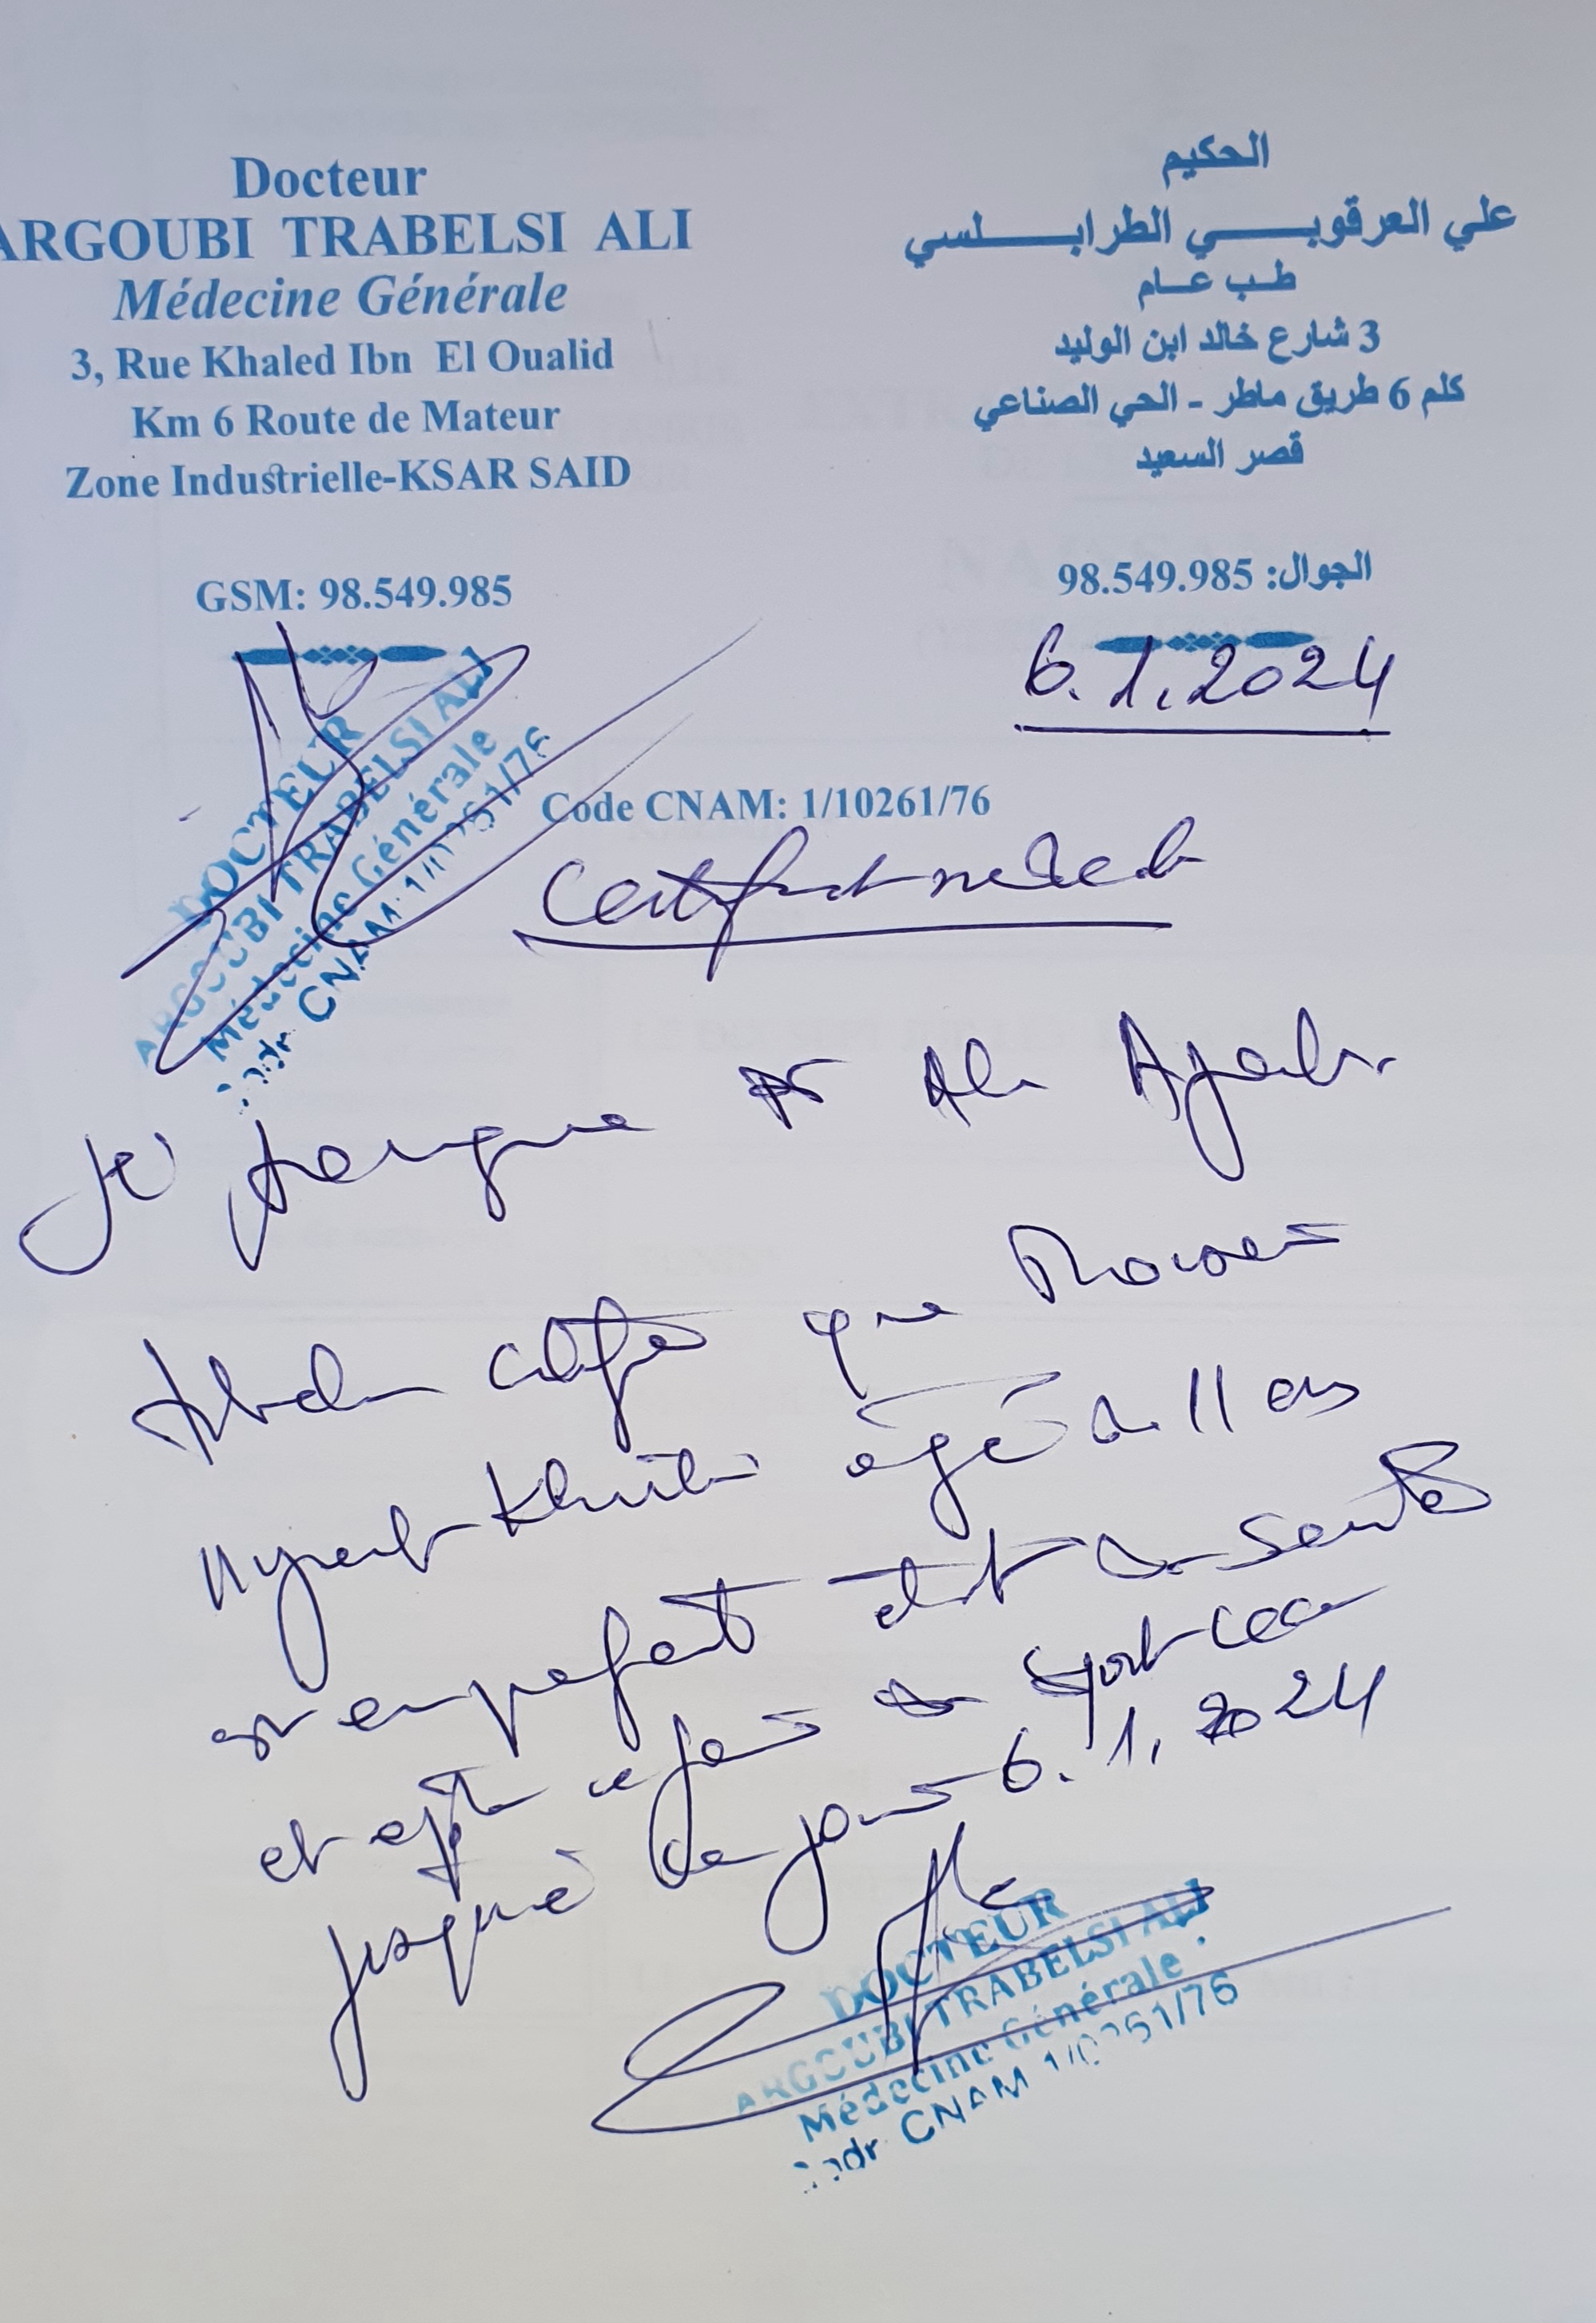 Docteur
ARGOUBI TRABELSI ALI
Médecine Générale
3, Rue Khaled Ibn El Oualid
Km 6 Route de Mateur
Zone Industrielle-KSAR SAID
GSM: 98.549.985
الحكيم
علي العرقوبي الطرابلسي
طب عام
3 شارع خالد ابن الوليد
كلم 6 طريق ماطر - الحي الصناعي
قصر السعيد
الجوال: 98.549.985
6.1.2024
DOCTEUR
ARGOUBI TRABELSI ALI
Médecine Générale
CNAM 1/10261/76
Code CNAM: 1/10261/76
Certificat medical
Je Dr Ali
que
âgé de 11 ans
est en parfait état de santé
et apte à faire du sport
jusqu'à ce jour 6.1.2024
DOCTEUR
ARGOUBI TRABELSI ALI
Médecine Générale
CNAM 1/10261/76